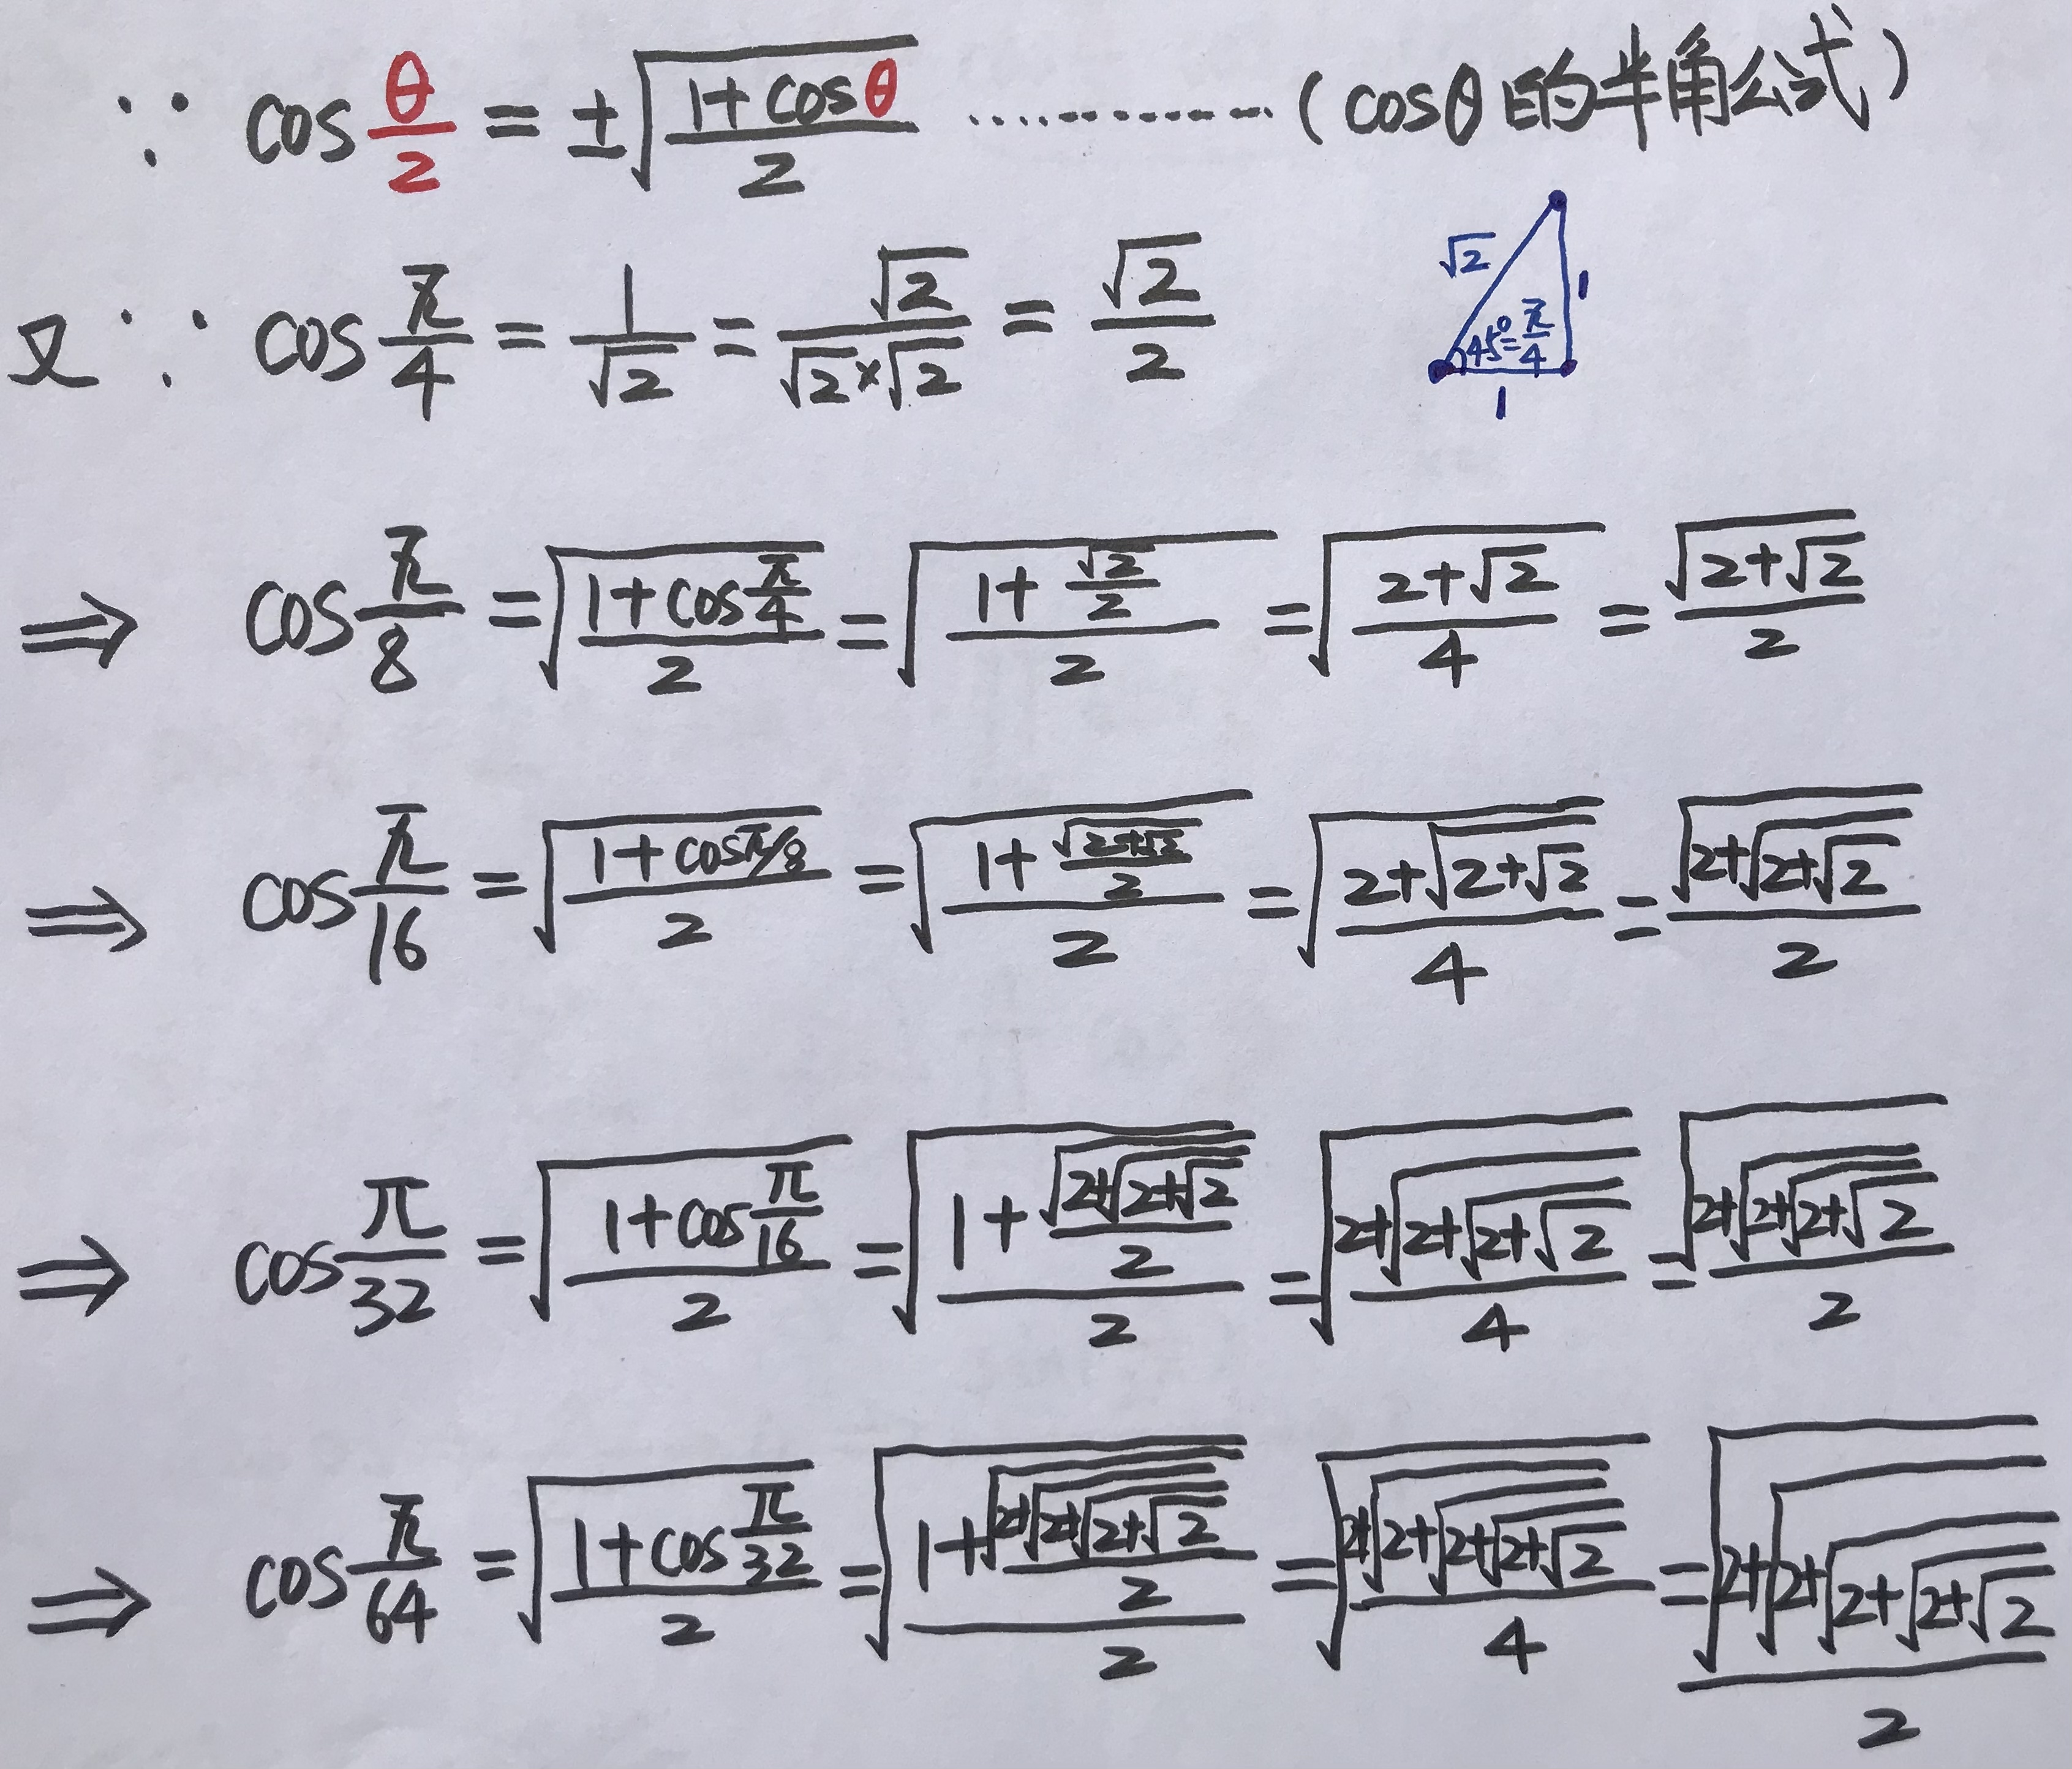 ∵ cos θ/2 = ±√((1+cosθ)/2) ············ (cosθ的半角公式)
又∵ cos π/4 = 1/√2 = √2/(√2×√2) = √2/2
√2 1 45°=π/4 1
⇒ cos π/8 = √((1+cos π/4)/2) = √((1+√2/2)/2) = √((2+√2)/4) = √(2+√2)/2
⇒ cos π/16 = √((1+cosπ/8)/2) = √((1+√(2+√2)/2)/2) = √((2+√(2+√2))/4) = √(2+√(2+√2))/2
⇒ cos π/32 = √((1+cos π/16)/2) = √((1+√(2+√(2+√2))/2)/2) = √((2+√(2+√(2+√2)))/4) = √(2+√(2+√(2+√2)))/2
⇒ cos π/64 = √((1+cos π/32)/2) = √((1+√(2+√(2+√(2+√2)))/2)/2) = √((2+√(2+√(2+√(2+√2))))/4) = √(2+√(2+√(2+√(2+√2))))/2